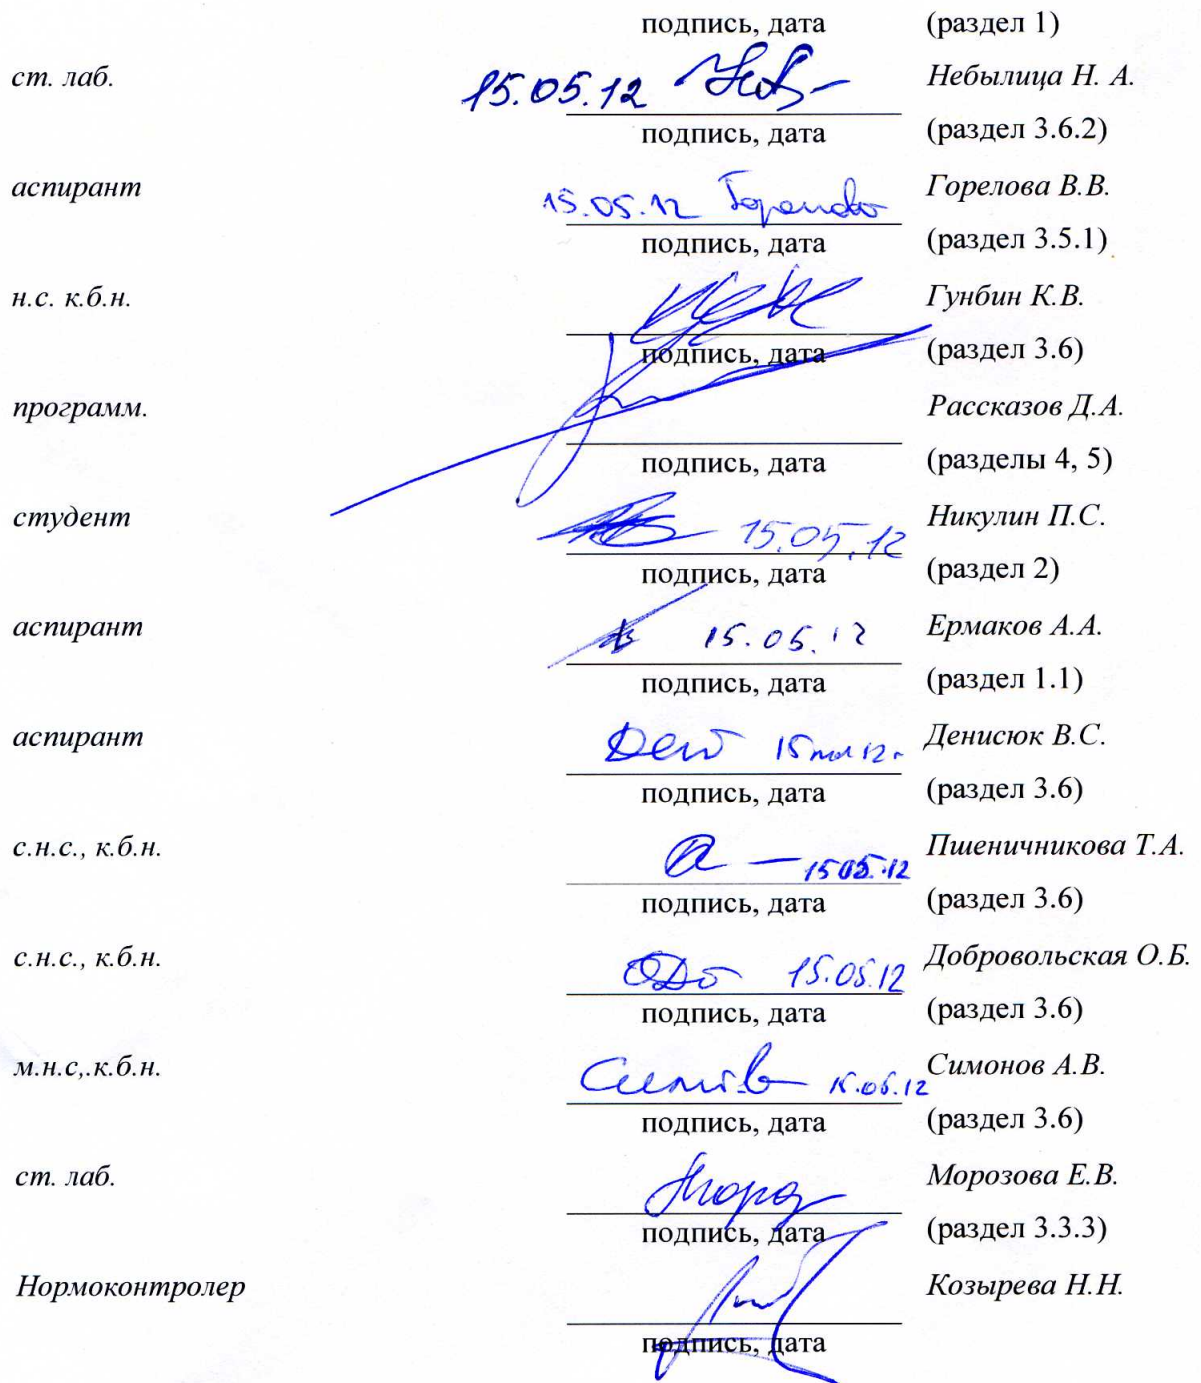 подпись, дата (раздел 1)
ст. лаб. 15.05.12 Небылица Н. А.
подпись, дата (раздел 3.6.2)
аспирант 15.05.12 Горелова В.В.
подпись, дата (раздел 3.5.1)
н.с. к.б.н. Гунбин К.В.
подпись, дата (раздел 3.6)
программ. Рассказов Д.А.
подпись, дата (разделы 4, 5)
студент 15.05.12 Никулин П.С.
подпись, дата (раздел 2)
аспирант 15.05.12 Ермаков А.А.
подпись, дата (раздел 1.1)
аспирант Денисюк В.С.
подпись, дата (раздел 3.6)
с.н.с., к.б.н. 15 05.12 Пшеничникова Т.А.
подпись, дата (раздел 3.6)
с.н.с., к.б.н. 15.05.12 Добровольская О.Б.
подпись, дата (раздел 3.6)
м.н.с,.к.б.н. 15.05.12 Симонов А.В.
подпись, дата (раздел 3.6)
ст. лаб. Морозова Е.В.
подпись, дата (раздел 3.3.3)
Нормоконтролер Козырева Н.Н.
подпись, дата